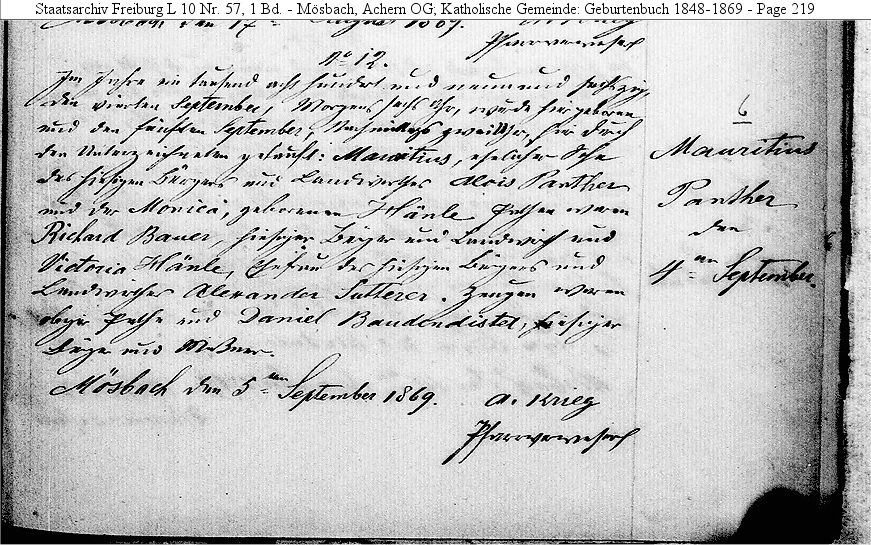 Staatsarchiv Freiburg L 10 Nr. 57, 1 Bd. - Mösbach, Achern OG; Katholische Gemeinde: Geburtenbuch 1848-1869 - Page 219
Mösbach den 17ten August 1869.
Pfarrverweser
No 12.
Im Jahre ein tausend acht hundert und neun und sechzig,
den vierten September, Morgens sechs Uhr, wurde hier geboren
und den fünften September, Nachmittags zwei Uhr, hier durch
den Unterzeichneten getauft: Mauritius, ehelicher Sohn
des hiesigen Bürgers und Landwirthes Alois Panther
und der Monica, geborenen Hänle. Pathen waren
Richard Bauer, hiesiger Bürger und Landwirth und
Victoria Hänle, Ehefrau des hiesigen Bürgers und
Landwirthes Alexander Sutterer. Zeugen waren
obige Pathe und Daniel Baudendistel, hiesiger
Bürger und Meßner.
Mösbach den 5ten September 1869.
A. Krieg
Pfarrverweser
6
Mauritius
Panther
den
4ten September.